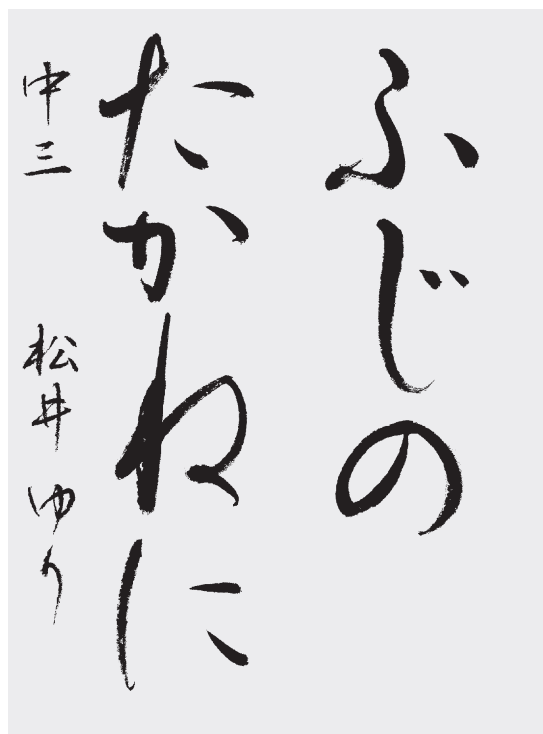 ふじの
たかねに
中三 松井ゆり